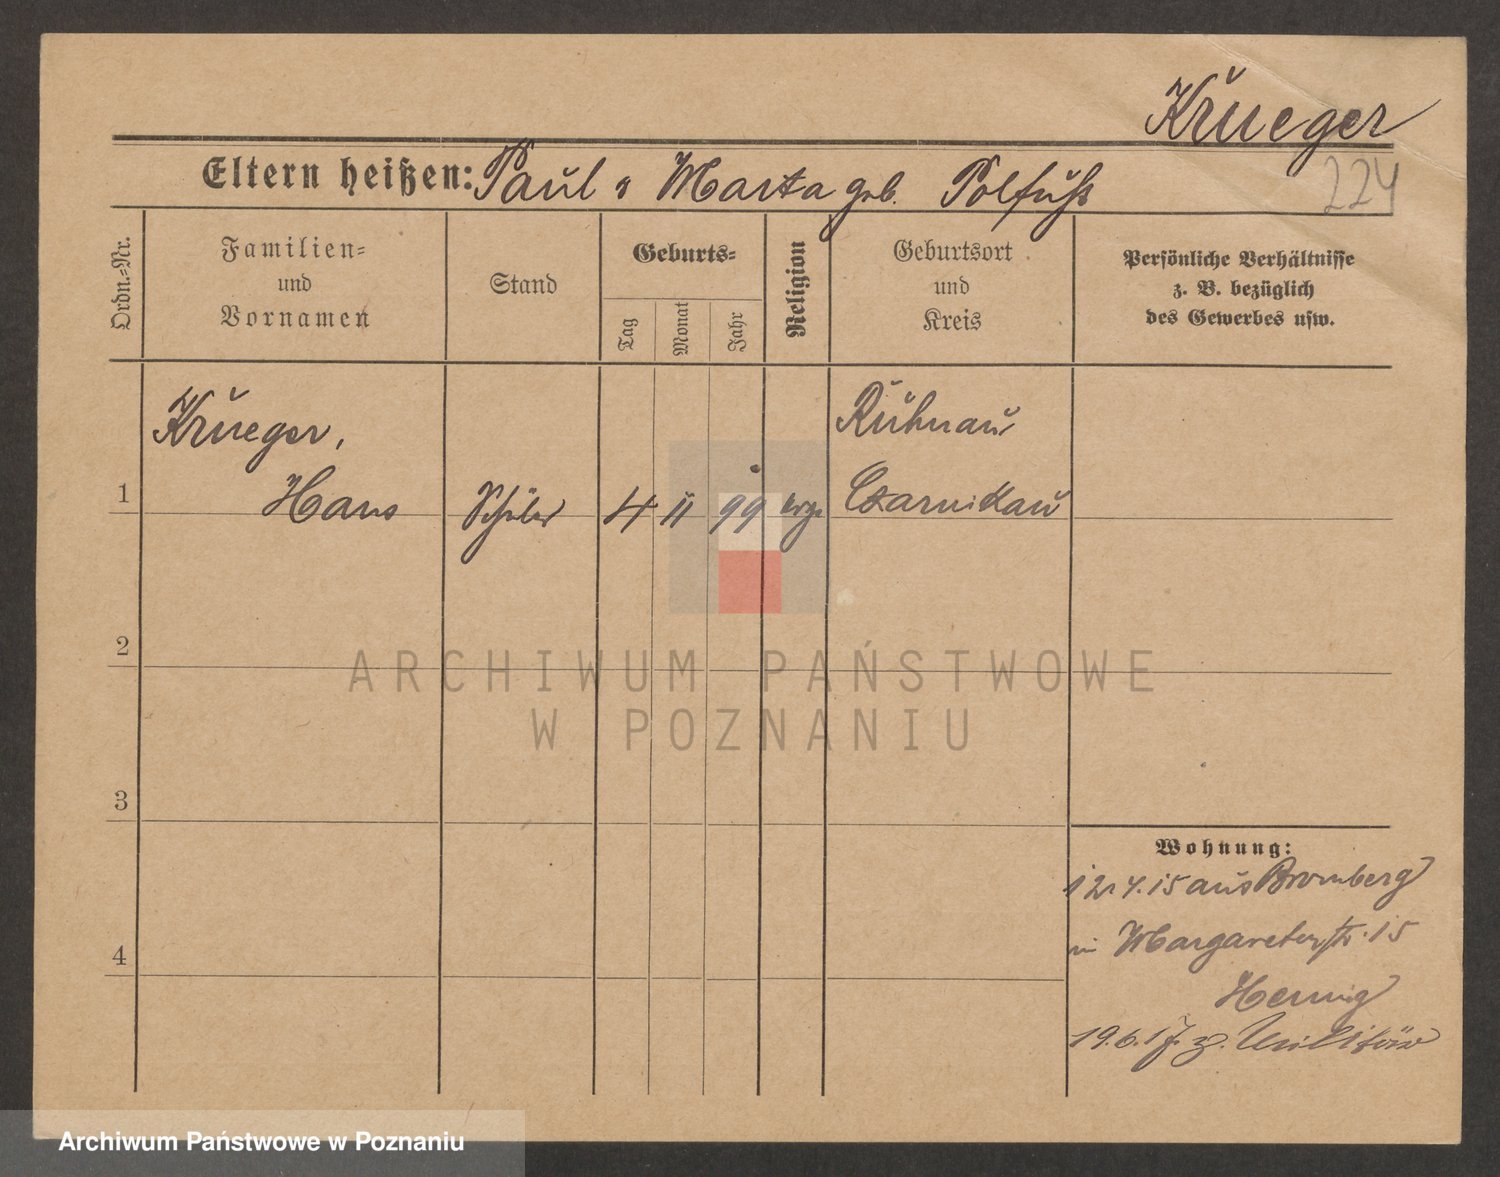 Krueger
Eltern heißen: Paul u Marta geb. Polfuß
224
Ordn.-Nr.
Familien-
und
Vornamen
Stand
Geburts-
Tag
Monat
Jahr
Religion
Geburtsort
und
Kreis
Persönliche Verhältnisse
z. B. bezüglich
des Gewerbes usw.
Krueger,
Ruhnau
1 Hans Schüler 4 11 99 evgl Czarnikau
2
ARCHIWUM PAŃSTWOWE
W POZNANIU
3
Wohnung:
12.4.15 aus Bromberg
Margaretenstr. 15
Hennig
4
19.6.17. z. Militär
Archiwum Państwowe w Poznaniu